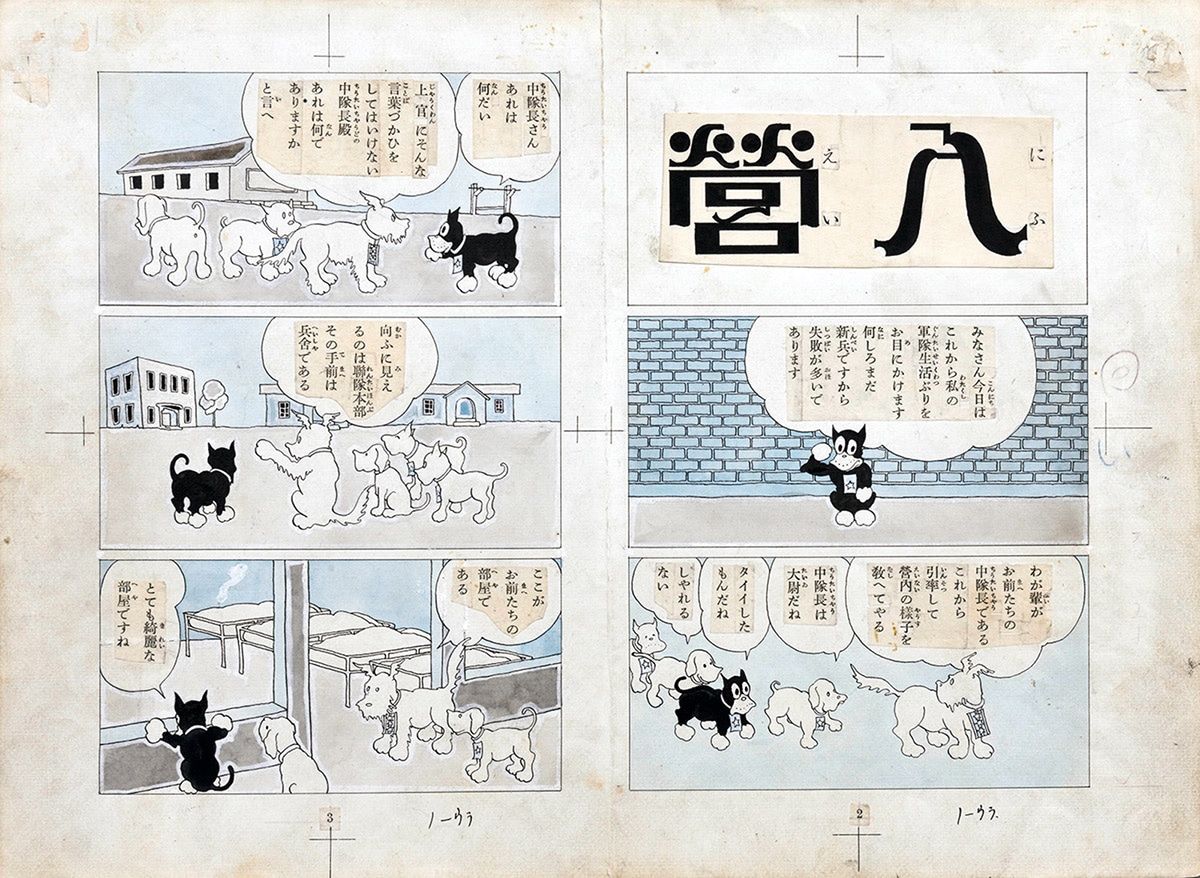 入營
にふえい
みなさん今日は
これから私の
軍隊生活ぶりを
お目にかけます
何しろまだ
新兵ですから
失敗が多いで
あります
わが輩が
お前たちの
中隊長である
これから
引率して
營内の樣子を
敎へてやる
中隊長は
大尉だね
タイイした
もんだね
しやれる
ない
2
1ーウラ
中隊長さん
あれは
何だい
上官にそんな
言葉づかひを
してはいけない
中隊長殿
あれは何で
ありますか
と言へ
向ふに見え
るのは聯隊本部
その手前は
兵舍である
ここが
お前たちの
部屋で
ある
とても綺麗な
部屋ですね
3
1ーウラ